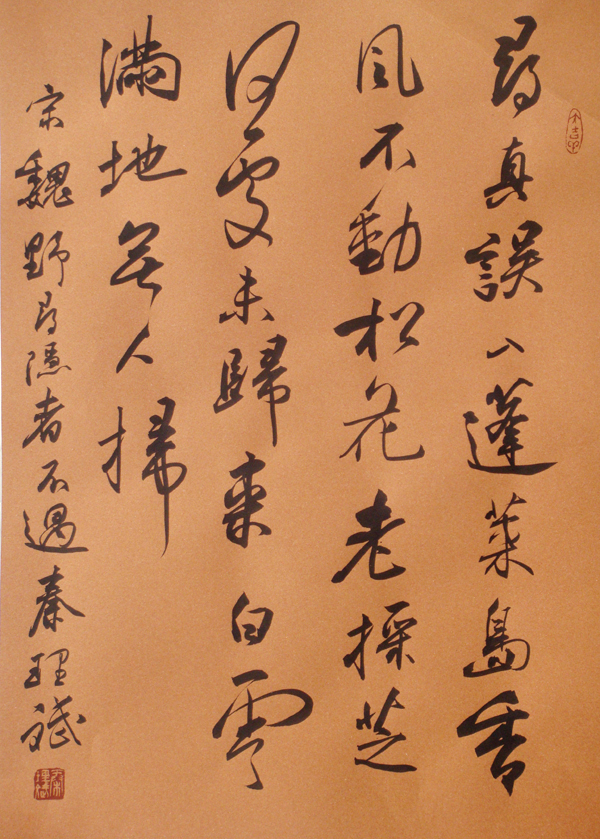 尋真誤入蓬萊島香
風不動松花老採芝
何處未歸來白雲
滿地無人掃
宋魏野尋隱者不遇秦理斌